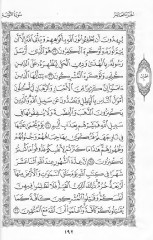 الجزء العاشر سورة التوبة
يُرِيدُونَ أَن يُطْفِـُٔوا۟ نُورَ ٱللَّهِ بِأَفْوَٰهِهِمْ وَيَأْبَى ٱللَّهُ إِلَّآ أَن
يُتِمَّ نُورَهُۥ وَلَوْ كَرِهَ ٱلْكَٰفِرُونَ ٣٢ هُوَ ٱلَّذِىٓ أَرْسَلَ
رَسُولَهُۥ بِٱلْهُدَىٰ وَدِينِ ٱلْحَقِّ لِيُظْهِرَهُۥ عَلَى ٱلدِّينِ كُلِّهِۦ
وَلَوْ كَرِهَ ٱلْمُشْرِكُونَ ٣٣ ۞ يَٰٓأَيُّهَا ٱلَّذِينَ ءَامَنُوٓا۟ إِنَّ كَثِيرًا
مِّنَ ٱلْأَحْبَارِ وَٱلرُّهْبَانِ لَيَأْكُلُونَ أَمْوَٰلَ ٱلنَّاسِ بِٱلْبَٰطِلِ
وَيَصُدُّونَ عَن سَبِيلِ ٱللَّهِ وَٱلَّذِينَ يَكْنِزُونَ ٱلذَّهَبَ
وَٱلْفِضَّةَ وَلَا يُنفِقُونَهَا فِى سَبِيلِ ٱللَّهِ فَبَشِّرْهُم بِعَذَابٍ
أَلِيمٍ ٣٤ يَوْمَ يُحْمَىٰ عَلَيْهَا فِى نَارِ جَهَنَّمَ فَتُكْوَىٰ بِهَا
جِبَاهُهُمْ وَجُنُوبُهُمْ وَظُهُورُهُمْ هَٰذَا مَا كَنَزْتُمْ
لِأَنفُسِكُمْ فَذُوقُوا۟ مَا كُنتُمْ تَكْنِزُونَ ٣٥ إِنَّ عِدَّةَ
ٱلشُّهُورِ عِندَ ٱللَّهِ ٱثْنَا عَشَرَ شَهْرًا فِى كِتَٰبِ ٱللَّهِ
يَوْمَ خَلَقَ ٱلسَّمَٰوَٰتِ وَٱلْأَرْضَ مِنْهَآ أَرْبَعَةٌ حُرُمٌ
ذَٰلِكَ ٱلدِّينُ ٱلْقَيِّمُ فَلَا تَظْلِمُوا۟ فِيهِنَّ أَنفُسَكُمْ
وَقَٰتِلُوا۟ ٱلْمُشْرِكِينَ كَآفَّةً كَمَا يُقَٰتِلُونَكُمْ
كَآفَّةً وَٱعْلَمُوٓا۟ أَنَّ ٱللَّهَ مَعَ ٱلْمُتَّقِينَ ٣٦
١٩٢